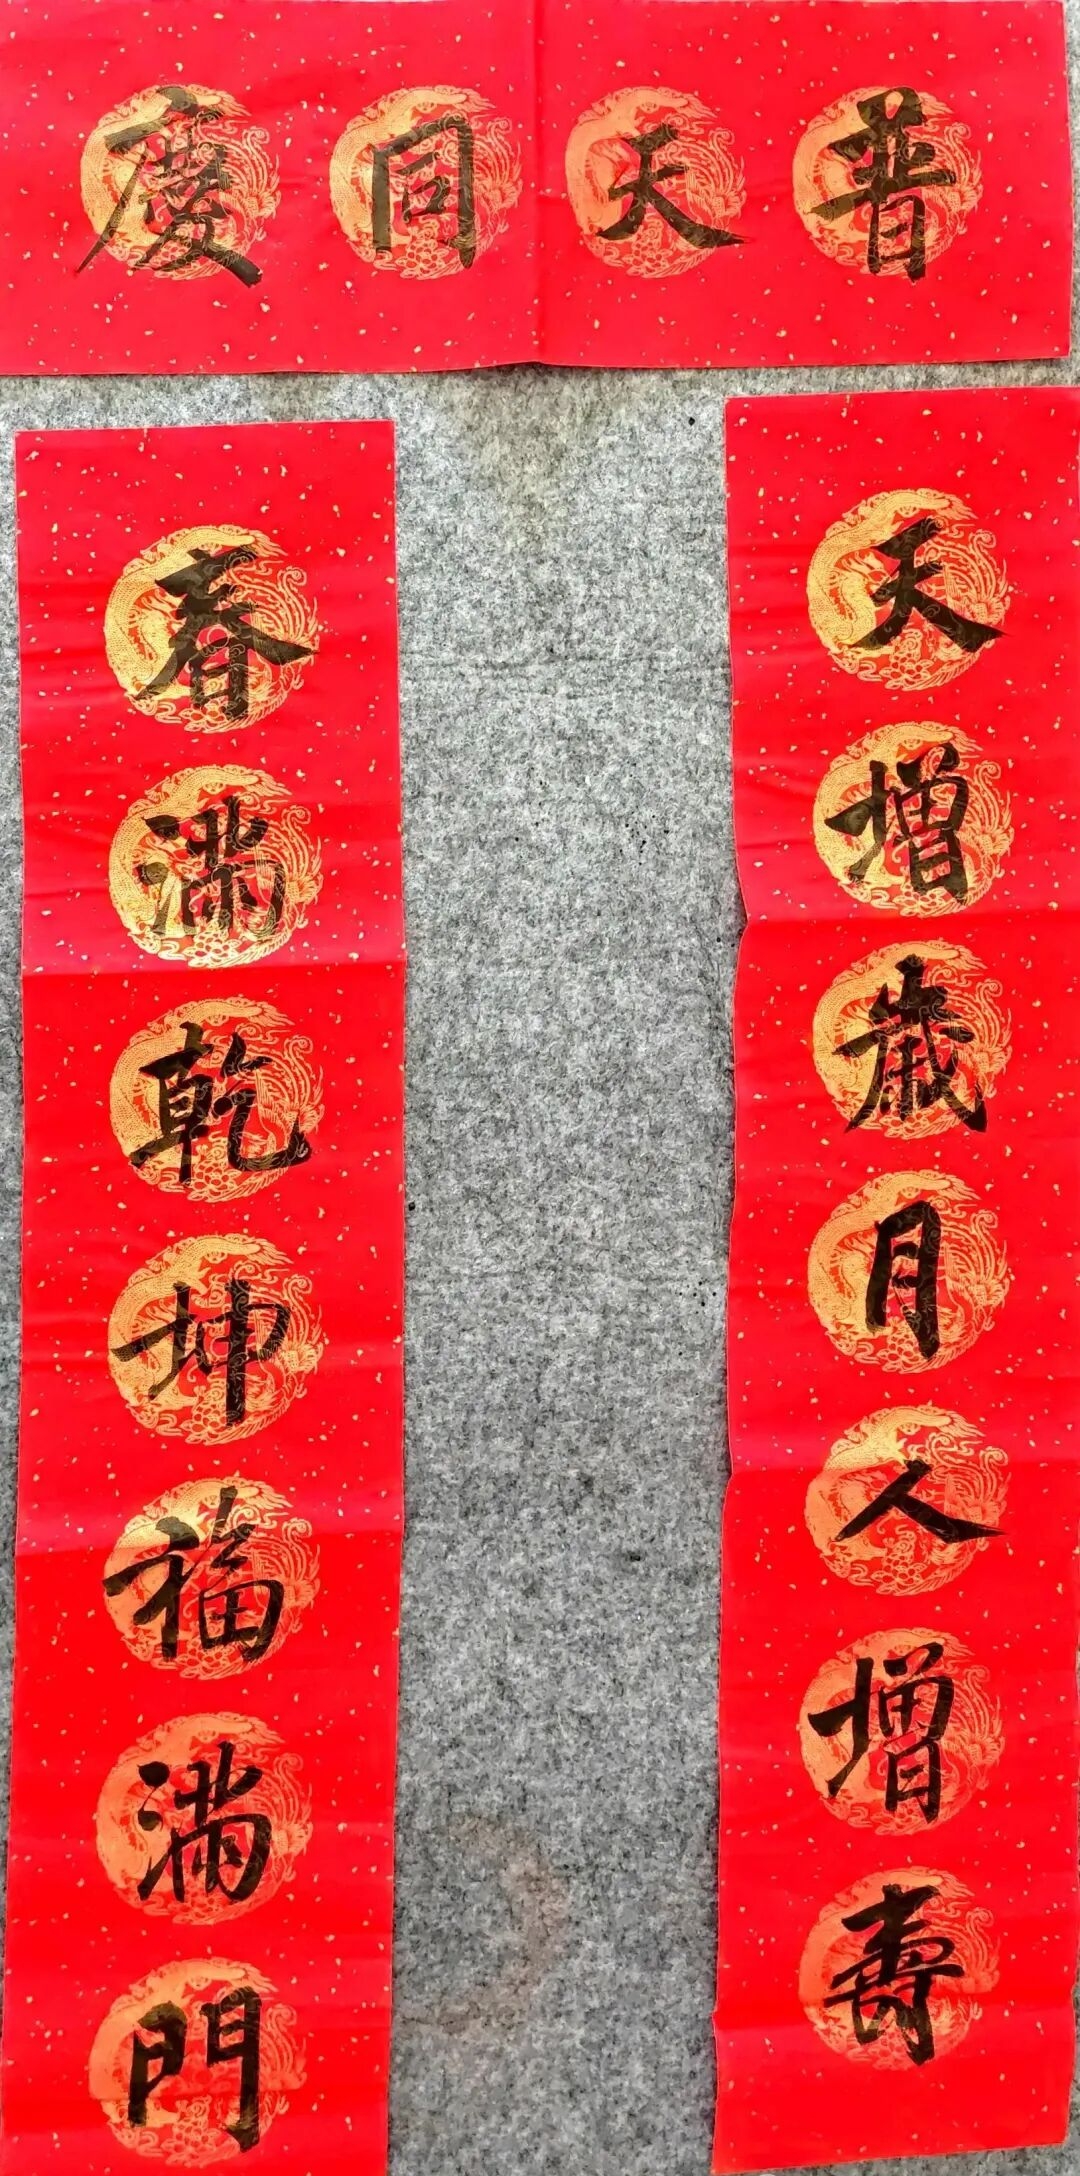 普天同慶
天增歲月人增壽
春滿乾坤福滿門